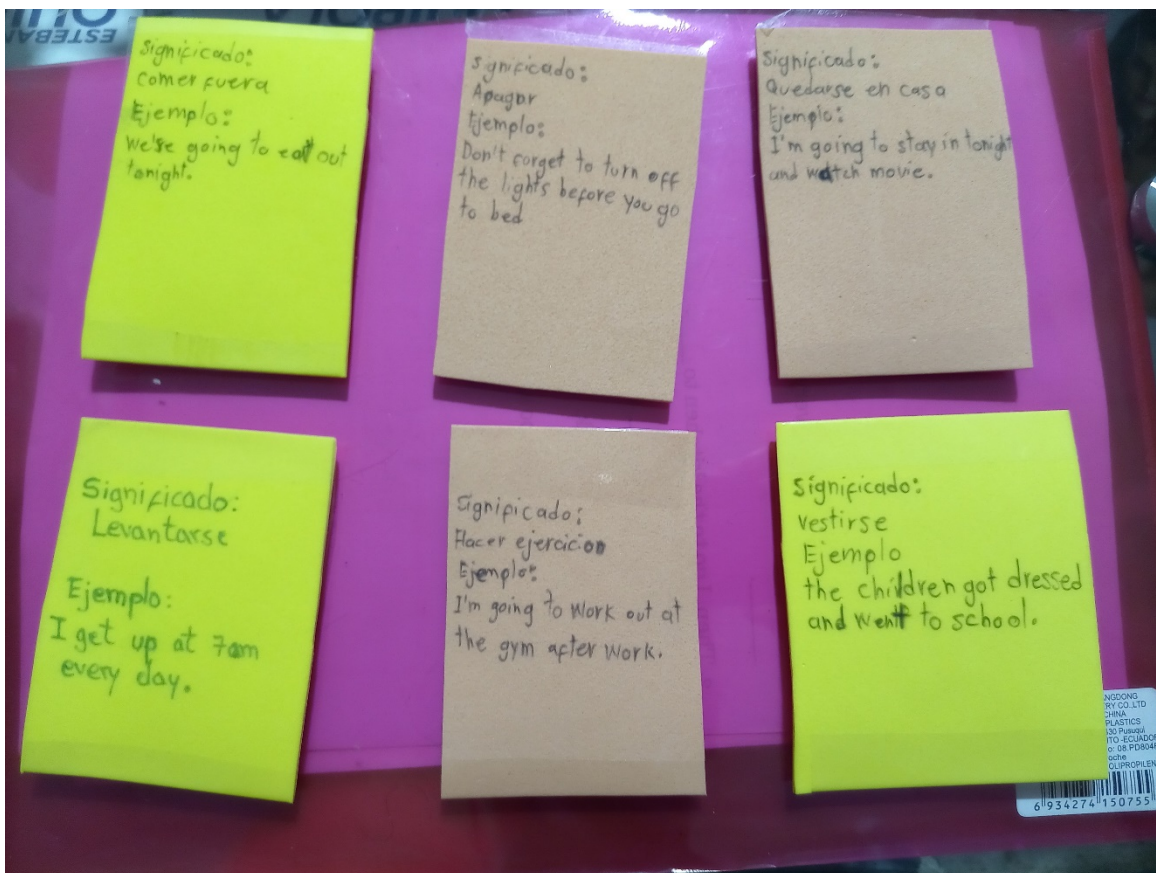 Significado:
Comer fuera
Ejemplo:
we're going to eat out
tonight.
Significado:
Apagar
Ejemplo:
Don't forget to turn off
the lights before you go
to bed
Significado:
Quedarse en casa
Ejemplo:
I'm going to stay in tonight
and watch movie.
Significado:
Levantarse
Ejemplo:
I get up at 7am
every day.
Significado:
Hacer ejercicio
Ejemplo:
I'm going to work out at
the gym after work.
Significado:
vestirse
Ejemplo
the children got dressed
and went to school.
NGDONG
RY CO.,LTD
CHINA
PLASTICS
Pusuquí
ITO -ECUADOR
oche
OLIPROPILEN
6 934274 150755
ESTEBAN